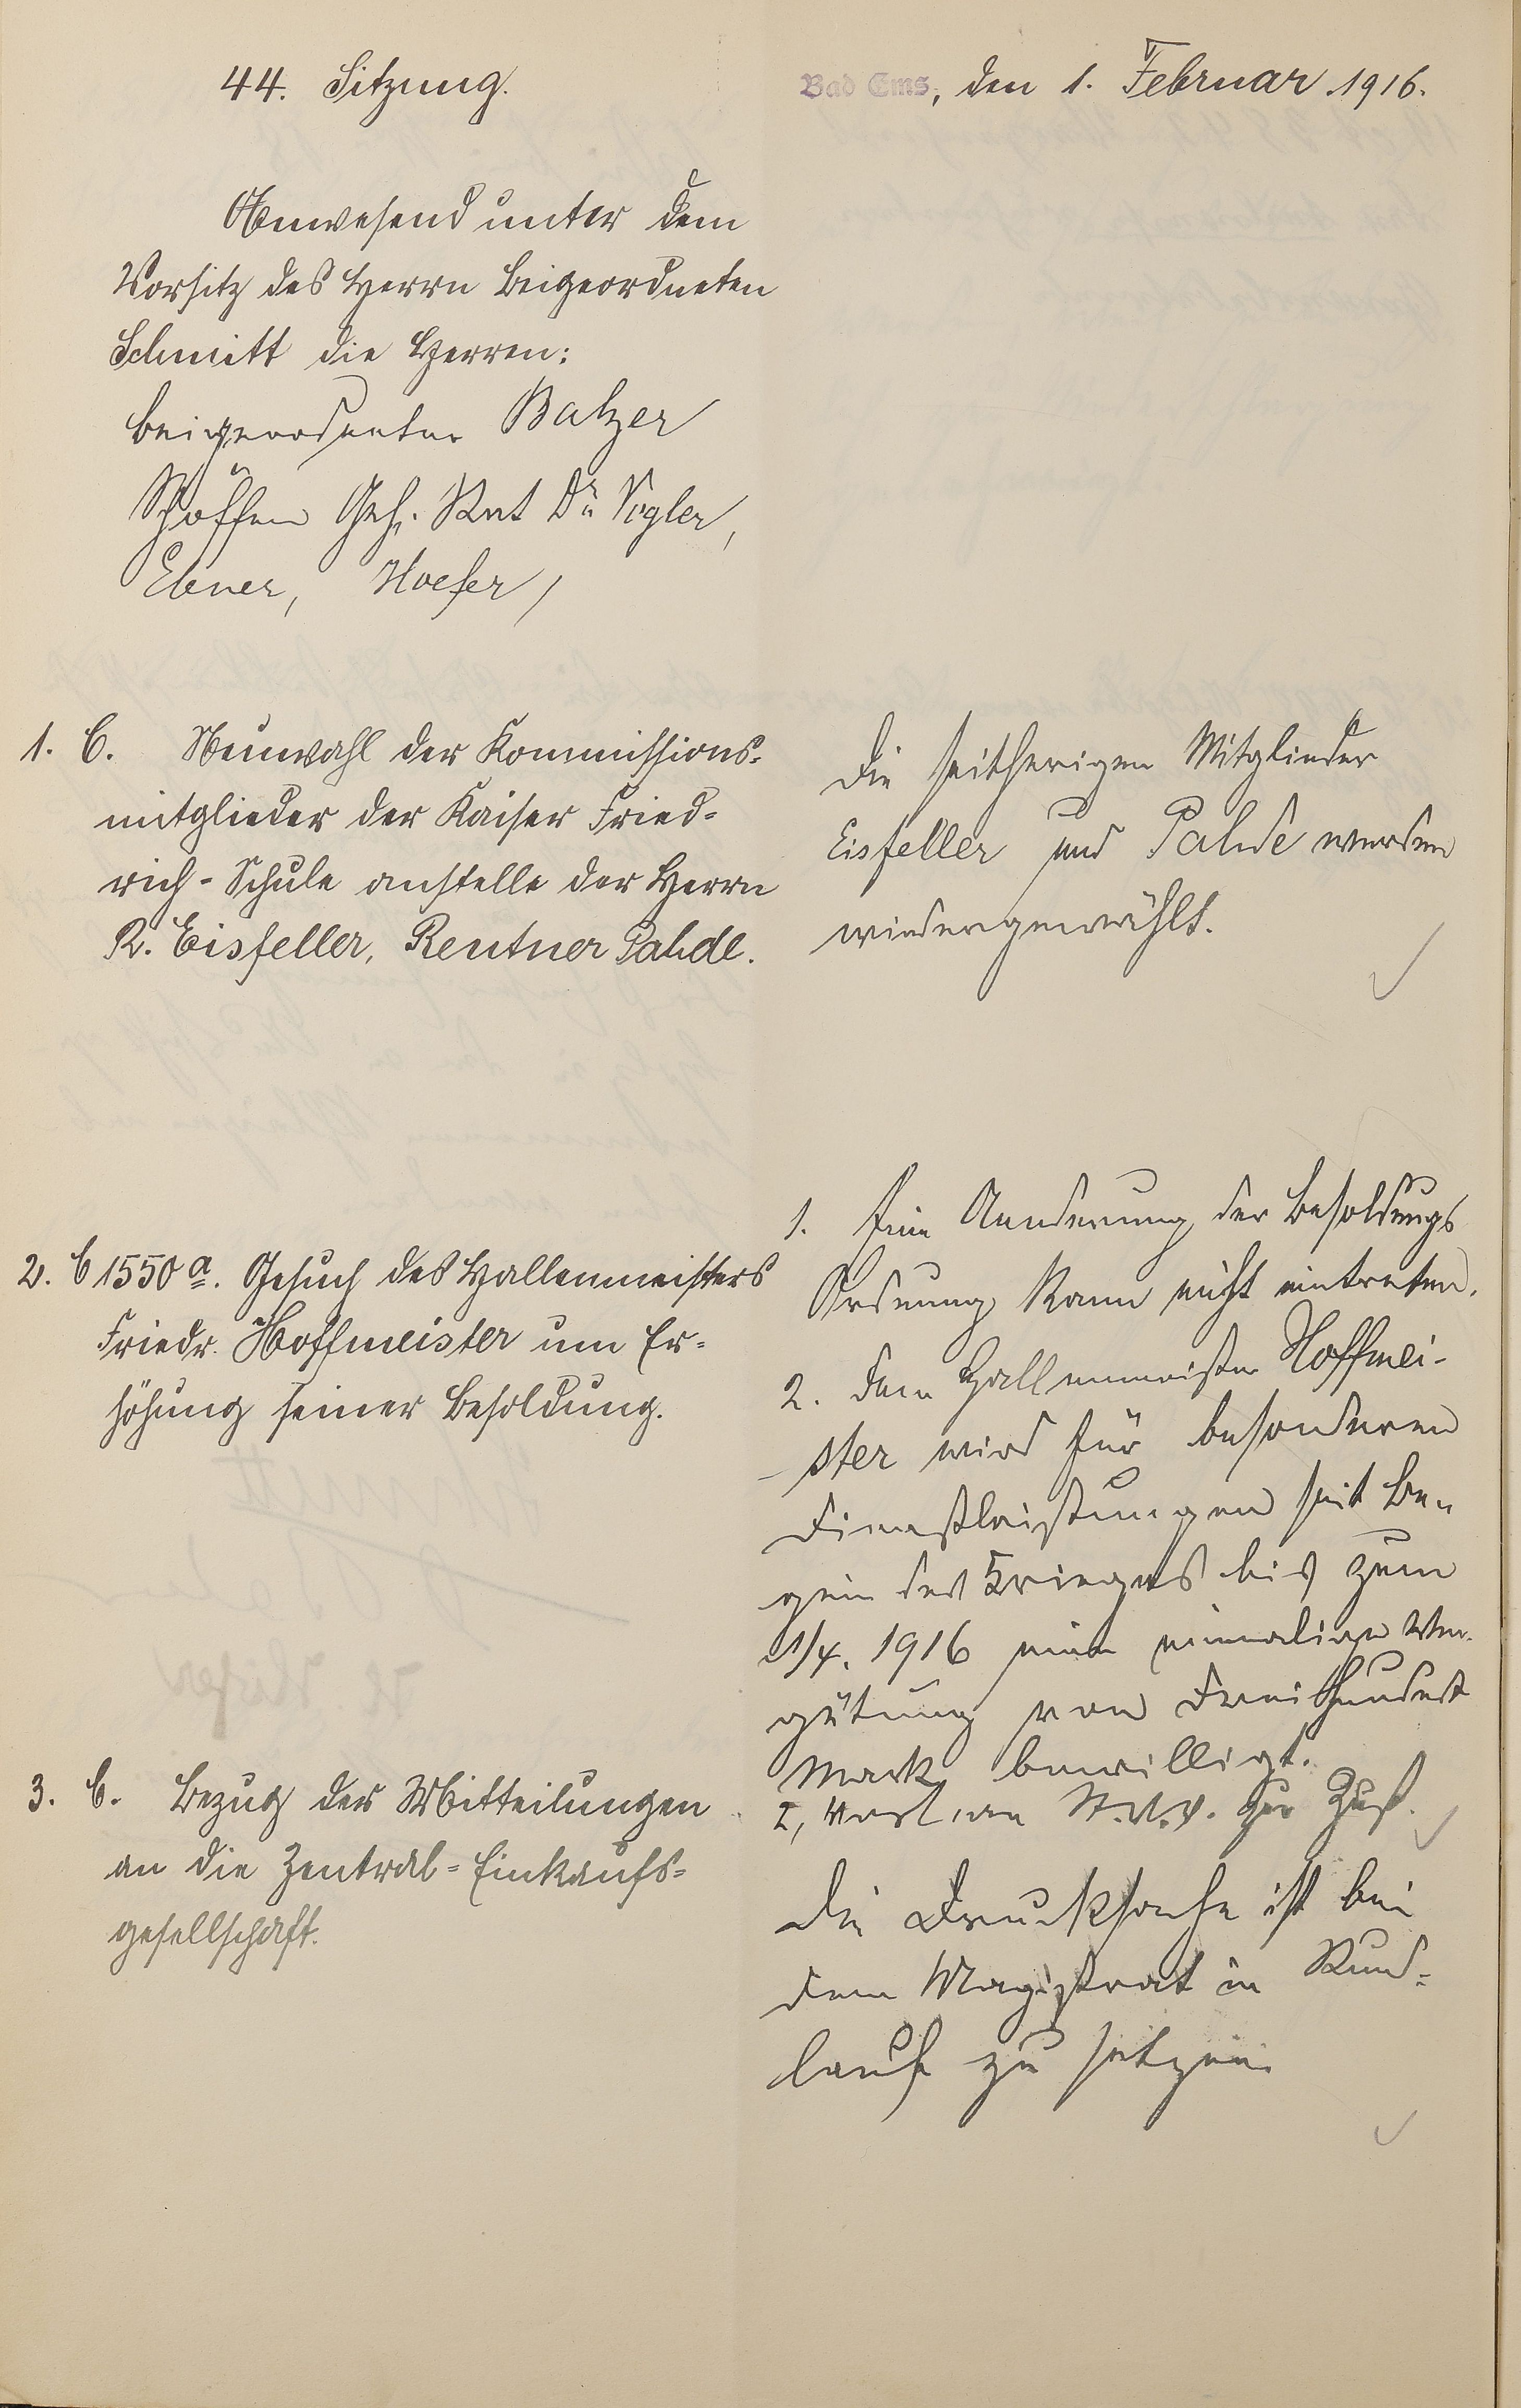 44. Sitzung.
Bad Ems, den 1. Februar 1916.
Anwesend unter dem
Vorsitz des Herrn Beigeordneten
Schmitt die Herren:
Beigeordneter Balzer
Schöffen Geh. Rat Dr. Vogler,
Ebner, Hoefer,
1. C. Neuwahl der Kommissions-
mitglieder der Kaiser Fried-
rich-Schule anstelle der Herrn
R. Eisfeller, Rentner Pahde.
Die seitherigen Mitglieder
Eisfeller und Pahde werden
wiedergewählt.
2. C 1550 a. Gesuch des Hallenmeisters
Friedr. Hoffmeister um Er-
höhung seiner Besoldung.
1. Eine Aenderung der Besoldungs
Ordnung kann nicht eintreten.
2. Dem Hallenmeister Hoffmei-
ster wird für besonderen
Dienstleistungen seit Be-
ginn des Krieges bis zum
1/4. 1916 eine einmalige Ver-
gütung von Dreihundert
Mark bewilligt.
I, Vorl. an St.V.V. zur Zust.
3. C. Bezug der Mitteilungen
an die Zentral-Einkaufs-
gesellschaft.
Die Drucksache ist bei
dem Magistrat in Rund-
lauf zu setzen.